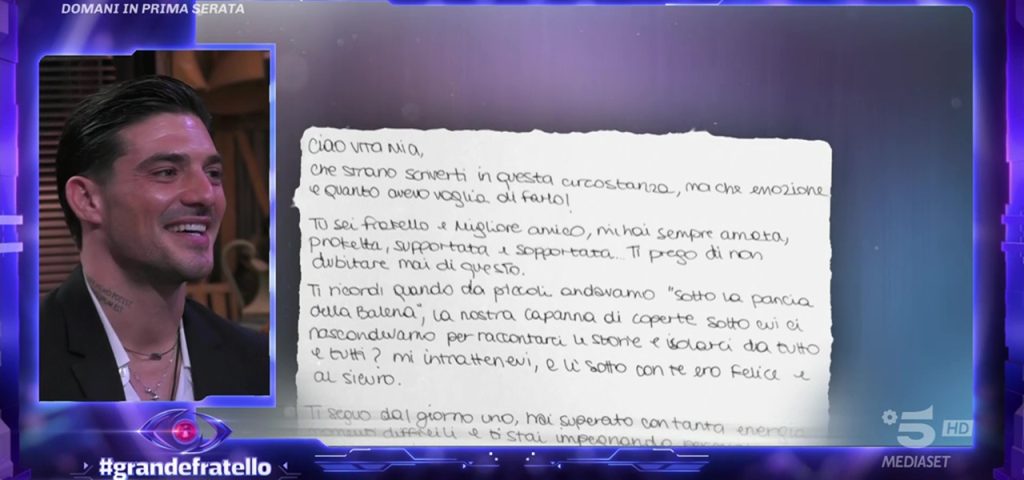 DOMANI IN PRIMA SERATA
Ciao vita mia,
che strano scriverti in questa circostanza, ma che emozione
e quanto avevo voglia di farlo!
Tu sei fratello e migliore amico, mi hai sempre amata,
protetta, supportata e sopportata... Ti prego di non
dubitare mai di questo.
Ti ricordi quando da piccoli andavamo "sotto la pancia
della Balena", la nostra capanna di coperte sotto cui ci
nascondevamo per raccontarci le storie e isolarci da tutto
e tutti? mi intrattenevi, e lì sotto con te ero felice e
al sicuro.
Ti seguo dal giorno uno, hai superato con tanta energia
momenti difficili e ti stai impegnando
#grandefratello
5 HD
MEDIASET